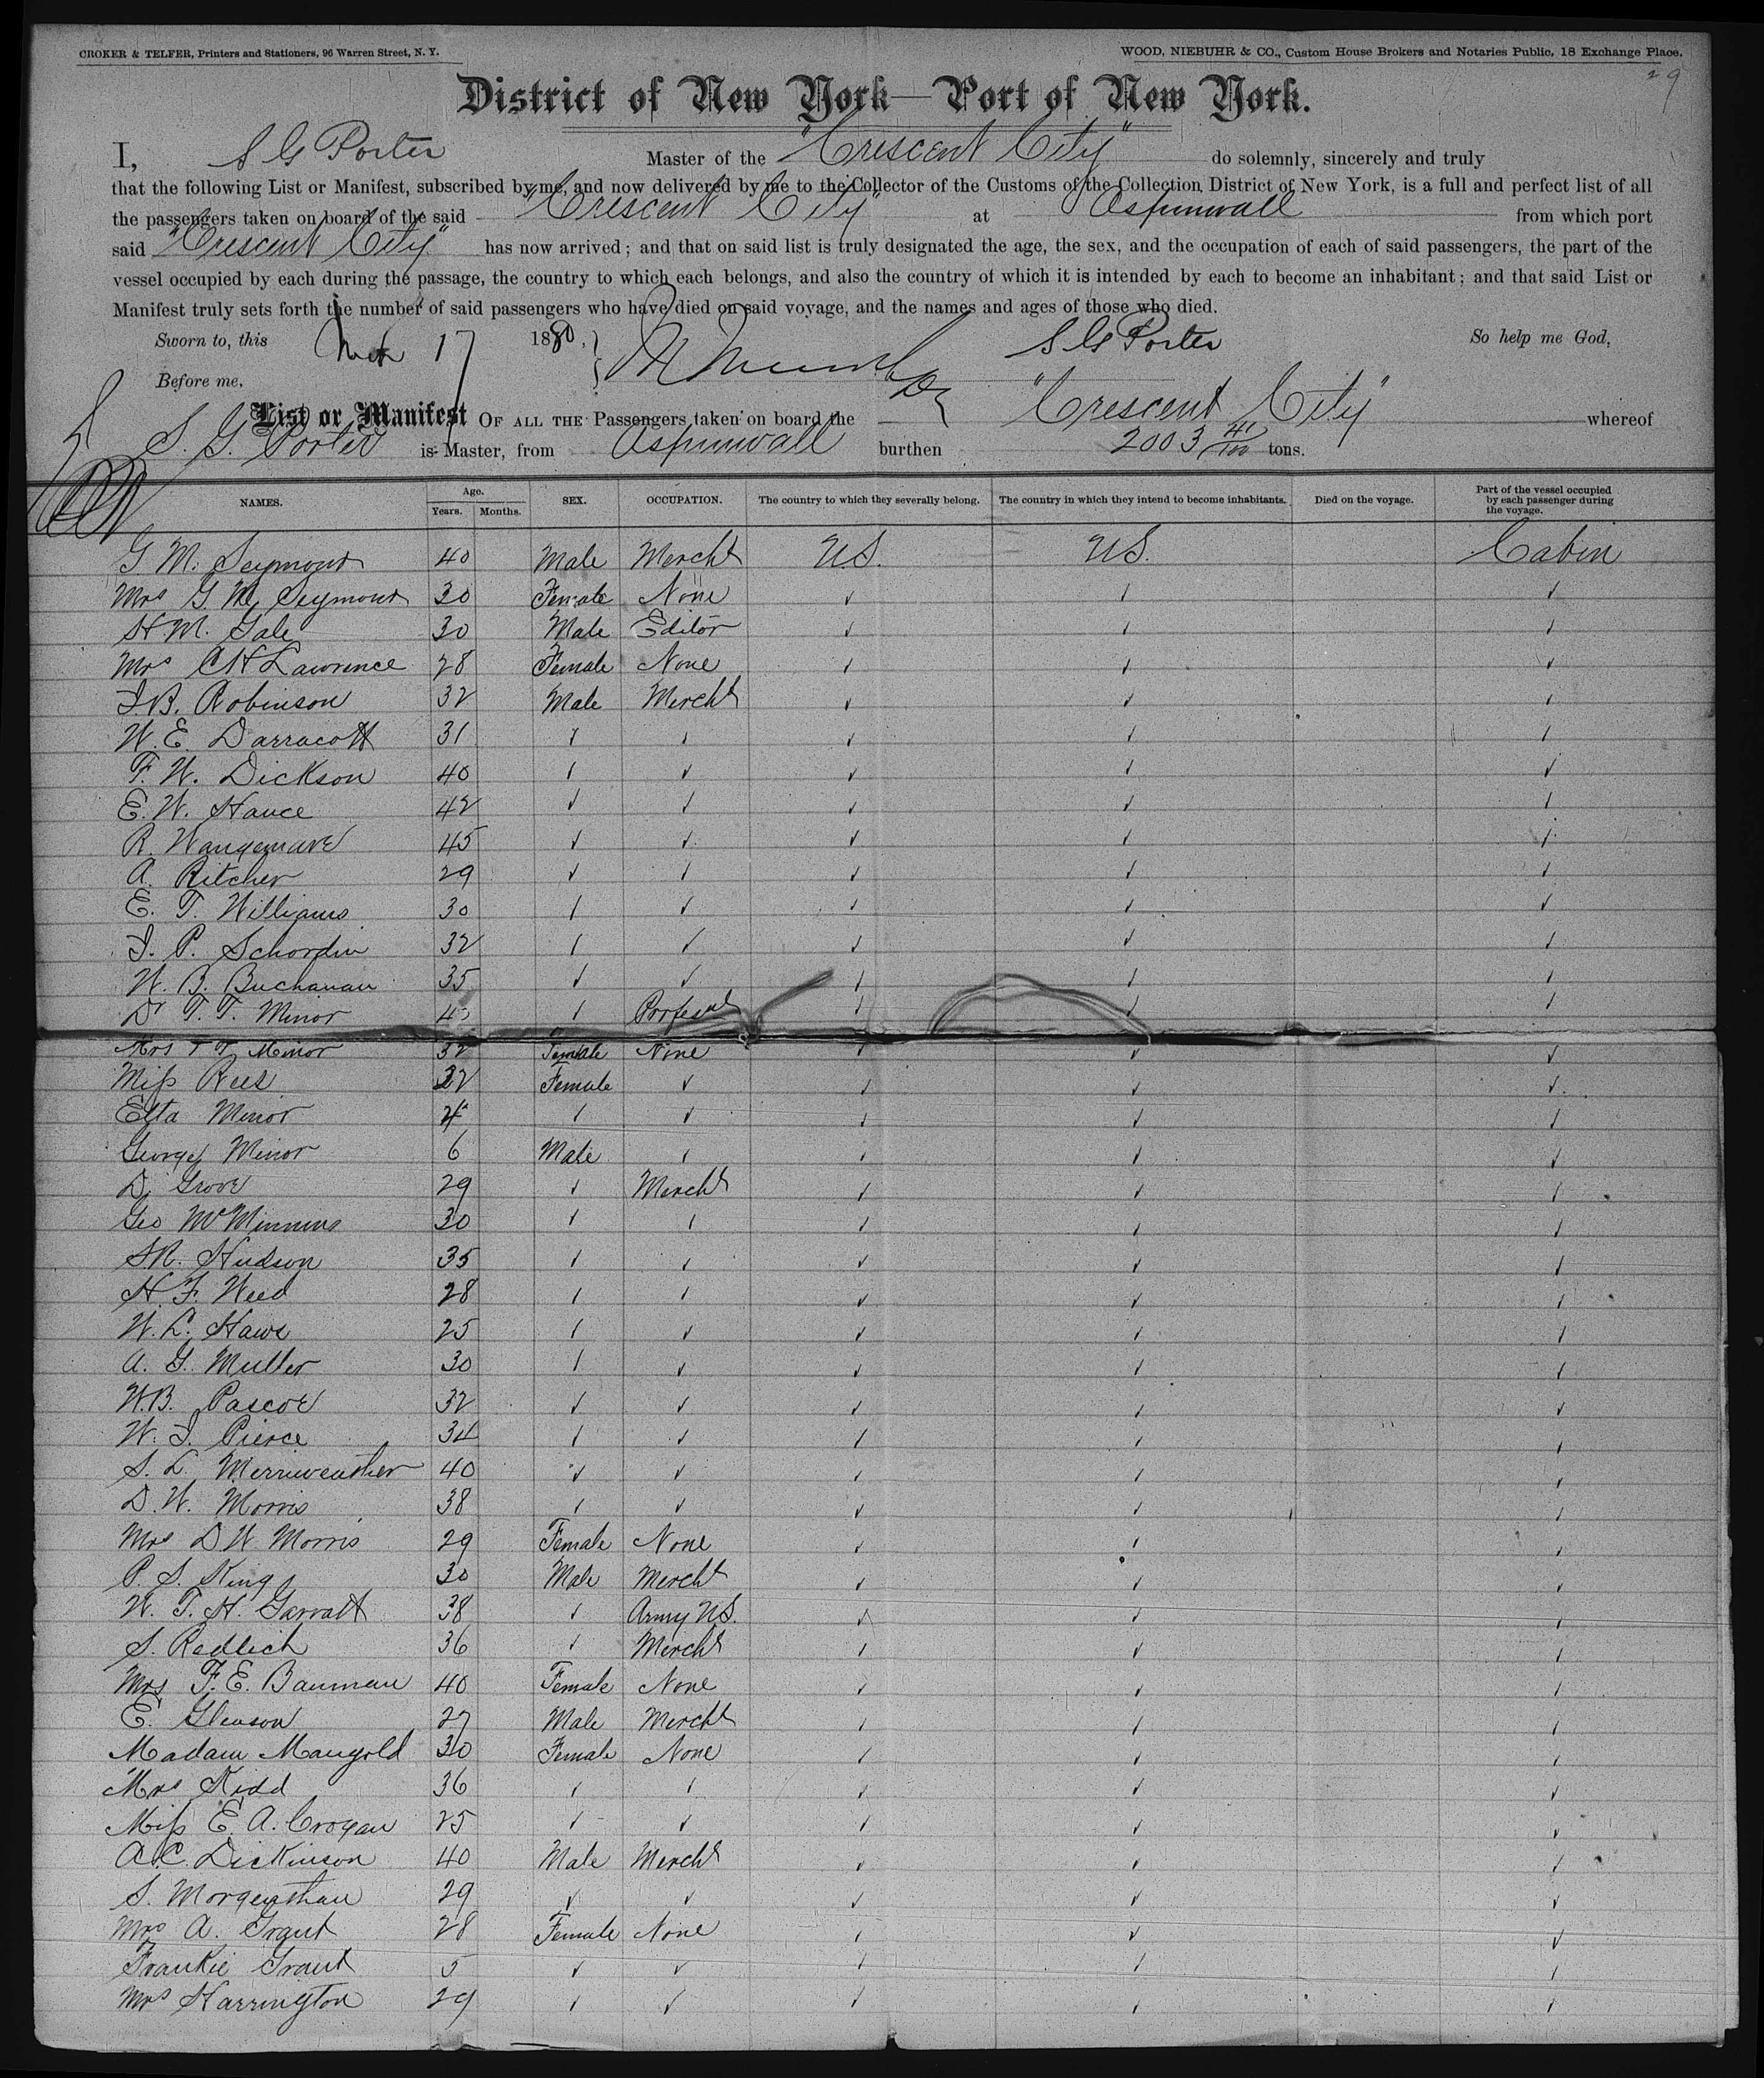 CROKER & TELFER, Printers and Stationers, 96 Warren Street, N. Y.
WOOD, NIEBUHR & CO., Custom House Brokers and Notaries Public, 18 Exchange Place.
29
District of New York—Port of New York.
I, S G Porter Master of the "Crescent City" do solemnly, sincerely and truly
that the following List or Manifest, subscribed by me, and now delivered by me to the Collector of the Customs of the Collection District of New York, is a full and perfect list of all
the passengers taken on board of the said "Crescent City" at Aspinwall from which port
said "Crescent City" has now arrived; and that on said list is truly designated the age, the sex, and the occupation of each of said passengers, the part of the
vessel occupied by each during the passage, the country to which each belongs, and also the country of which it is intended by each to become an inhabitant; and that said List or
Manifest truly sets forth the number of said passengers who have died on said voyage, and the names and ages of those who died.
Sworn to, this Mch 17 1880, S G Porter So help me God,
Before me,
List or Manifest OF ALL THE Passengers taken on board the "Crescent City" whereof
S. G. Porter is Master, from Aspinwall burthen 2003 41/100 tons.
NAMES. Age. Years. Months. SEX. OCCUPATION. The country to which they severally belong. The country in which they intend to become inhabitants. Died on the voyage. Part of the vessel occupied by each passenger during the voyage.
G M. Seymour 40 Male Mercht U.S. U.S. Cabin
Mrs G. M. Seymour 30 Female None ✓ ✓ ✓
H. M. Gale 30 Male Editor ✓ ✓ ✓
Mrs C H Lawrence 28 Female None ✓ ✓ ✓
J. B. Robinson 32 Male Mercht ✓ ✓ ✓
W. E. Darracott 31 ✓ ✓ ✓ ✓ ✓
F. W. Dickson 40 ✓ ✓ ✓ ✓ ✓
E. W. Hance 42 ✓ ✓ ✓ ✓ ✓
R. 45 ✓ ✓ ✓ ✓ ✓
A. Ritcher 29 ✓ ✓ ✓ ✓ ✓
E. T. Williams 30 ✓ ✓ ✓ ✓ ✓
J. P. Schordin 32 ✓ ✓ ✓ ✓ ✓
W. B. Buchanan 35 ✓ ✓ ✓ ✓ ✓
Dr T. T. Minor ✓ ✓ ✓ ✓
Mrs T T Minor 32 Female None ✓ ✓ ✓
Miss Rees 22 Female ✓ ✓ ✓ ✓
Etta Minor 4 ✓ ✓ ✓ ✓ ✓
George Minor 6 Male ✓ ✓ ✓ ✓
D. Grove 29 ✓ Mercht ✓ ✓ ✓
Geo McMinnins 30 ✓ ✓ ✓ ✓ ✓
S. R. Hudson 35 ✓ ✓ ✓ ✓ ✓
H. F. Weed 28 ✓ ✓ ✓ ✓ ✓
W. L. Haws 25 ✓ ✓ ✓ ✓ ✓
A. G. Muller 30 ✓ ✓ ✓ ✓ ✓
W. B. Pascoe 32 ✓ ✓ ✓ ✓ ✓
W. J. Pierce 34 ✓ ✓ ✓ ✓ ✓
S. L. Merriweather 40 ✓ ✓ ✓ ✓ ✓
D. W. Morris 38 ✓ ✓ ✓ ✓ ✓
Mrs D W Morris 29 Female None ✓ ✓ ✓
P. S. King 30 Male Mercht ✓ ✓ ✓
W. T. H. Garratt 38 ✓ Army U.S. ✓ ✓ ✓
S. Redlich 36 ✓ Mercht ✓ ✓ ✓
Mrs F. E. Bauman 40 Female None ✓ ✓ ✓
E. Gleason 27 Male Mercht ✓ ✓ ✓
Madam Mangold 30 Female None ✓ ✓ ✓
Mrs Kidd 36 ✓ ✓ ✓ ✓ ✓
Miss E. A. Crogan 25 ✓ ✓ ✓ ✓ ✓
A. C. Dickinson 40 Male Mercht ✓ ✓ ✓
S. Morgenthau 29 ✓ ✓ ✓ ✓ ✓
Mrs A. Grant 28 Female None ✓ ✓ ✓
Frankie Grant 5 ✓ ✓ ✓ ✓ ✓
Mrs Harrington 29 ✓ ✓ ✓ ✓ ✓